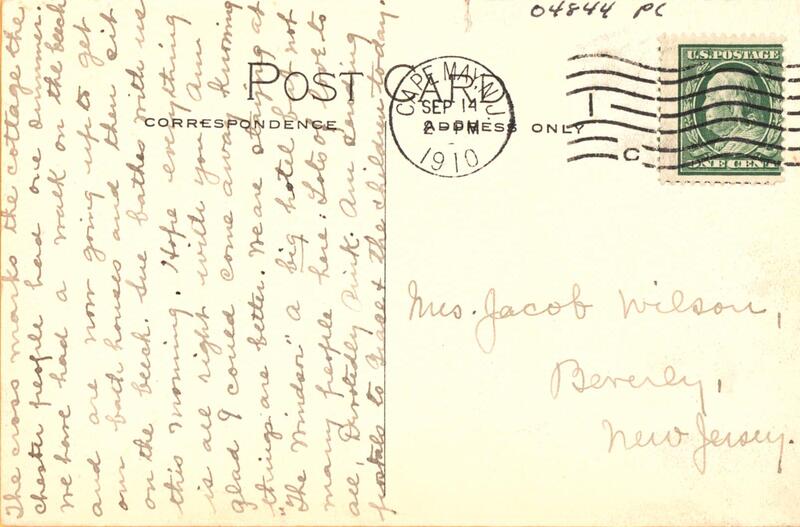 04844 PC
POST CARD
CORRESPONDENCE
ADDRESS ONLY
CAPE MAY, N.J.
SEP 14
2 - PM
1910
1
C
U.S. POSTAGE
ONE CENT
The cross marks the cottage the
chester people had one summer.
We have had a walk on the beech
and are now going up to get
our bath houses and then sit
on the beech. Sue bathes with us
this morning. Hope everything
is all right with you. Am
glad I could come away knowing
things are better. We are staying at
"The Windsor" a big hotel but not
many people here. Lots of love to
all, Devotedly Pink. Am sending
postals to & the children today.
Mrs. Jacob Wilson,
Beverly,
New Jersey.